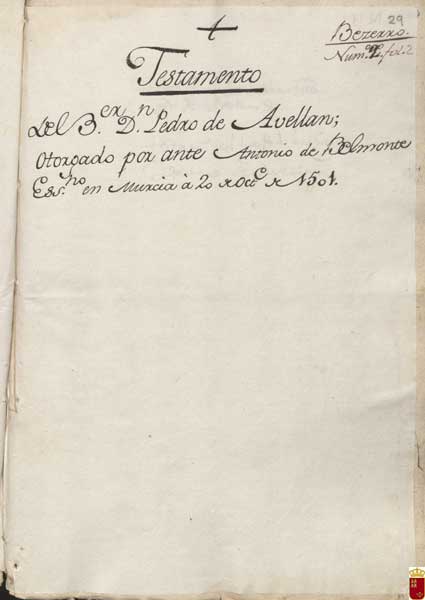 29
Bezerro.
Num.º 2, fol. 2
Testamento
Del B.er D.n Pedro de Avellan;
Otorgado por ante Antonio de Belmonte
Ess.no en Murcia à 20 de Oct.e de 1501.